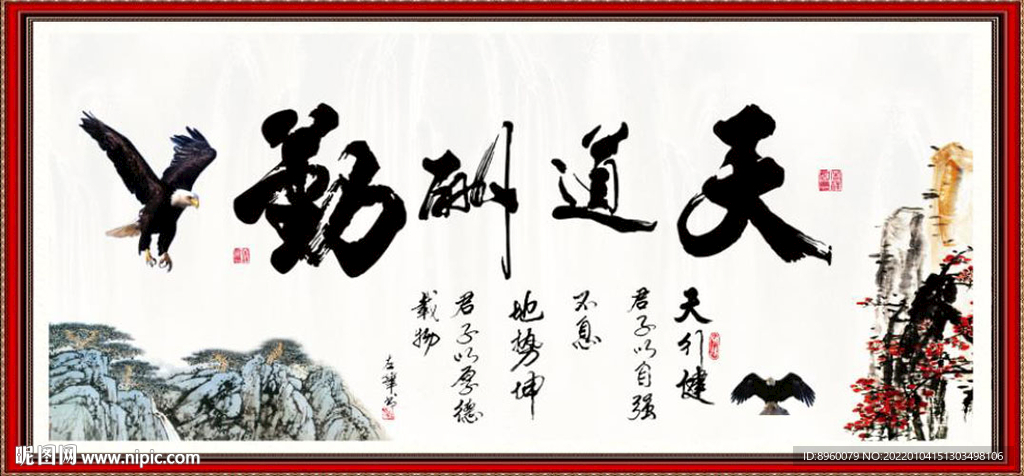 天道酬勤
天行健
君子以自强
不息
地势坤
君子以厚德
载物
昵图网 www.nipic.com
ID:8960079 NO:20220104151303498106